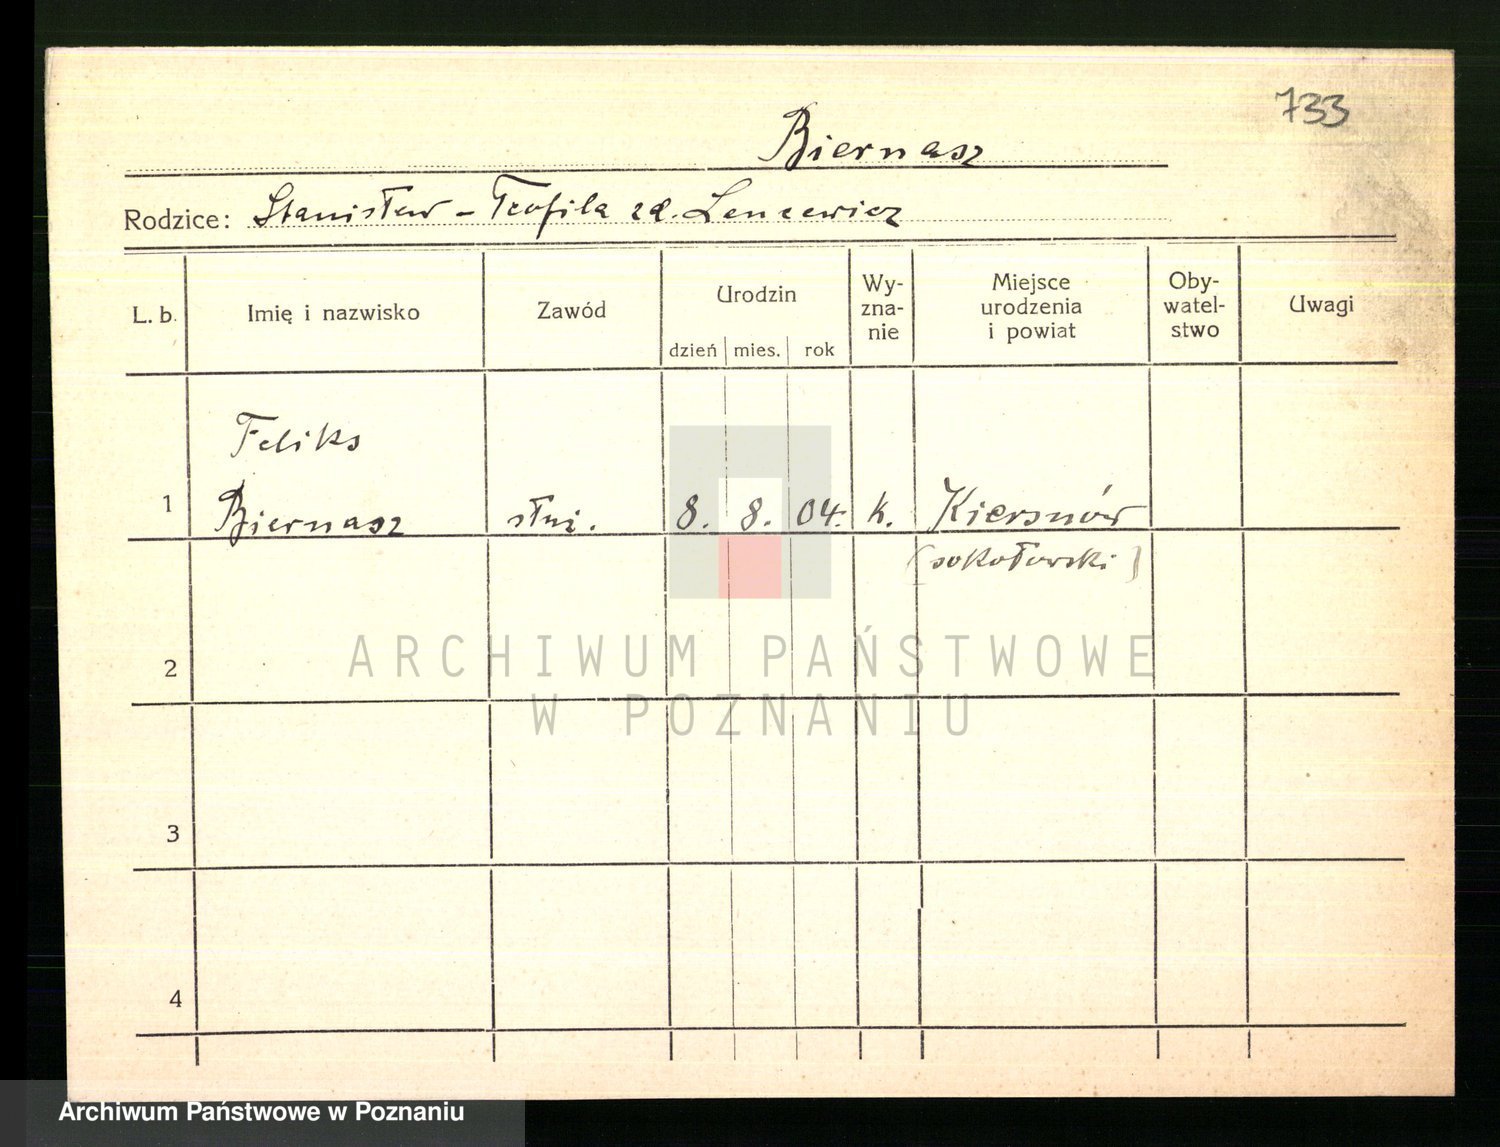 733
Biernasz
Rodzice: Stanisław – Teofila zd. Lencewicz
L. b. Imię i nazwisko Zawód Urodzin dzień mies. rok Wy-zna-nie Miejsce urodzenia i powiat Oby-watel-stwo Uwagi
Feliks
1 Biernasz służ. 8. 8. 04. k. Kiersnów
(sokołowski)
2
ARCHIWUM PAŃSTWOWE
W POZNANIU
3
4
Archiwum Państwowe w Poznaniu